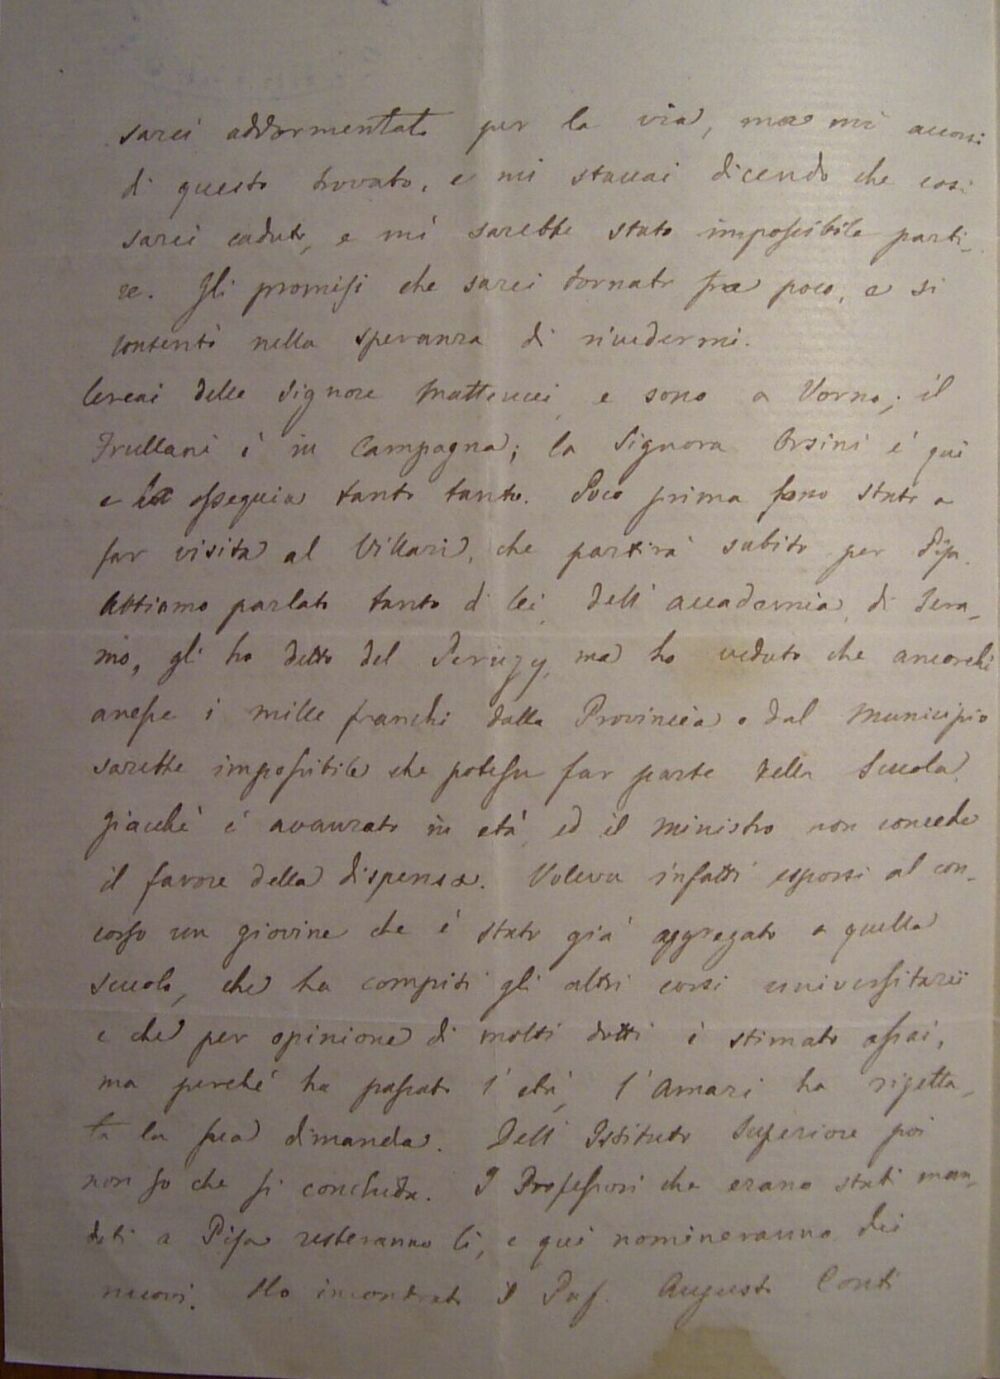 sarei addormentato per la via, ma mi accorsi
di questo trovato, e mi staccai dicendo che così
sarei caduto, e mi sarebbe stato impossibile parti-
re. Gli promisi che sarei tornato fra poco, e si
contentò nella speranza di rivedermi.
Cercai delle Signore Matteucci, e sono a Vorno; il
Frullani è in Campagna; la Signora Orsini è qui
e la ossequia tanto tanto. Poco prima sono stato a
far visita al Villari, che partirà subito per Pisa.
Abbiamo parlato tanto di lei, dell'accademia, di Tera-
mo, gli ho detto del Perugy, ma ho veduto che ancorchè
avesse i mille franchi dalla Provincia o dal Municipio
sarebbe impossibile che potesse far parte della Scuola,
giacchè è avanzato in età, ed il ministro non concede
il favore della dispensa. Voleva infatti esporsi al con-
corso un giovine che è stato già aggregato a quella
Scuola, che ha compiti gli altri corsi universitarii
e che per opinione di molti dotti è stimato assai,
ma perchè ha passato l'età, l'Amari ha rigetta-
ta la sua dimanda. Dell'Istituto Superiore poi
non so che si concluda. I Professori che erano stati man-
dati a Pisa resteranno lì, e qui nomineranno dei
nuovi. Ho incontrato il Prof. Augusto Conti